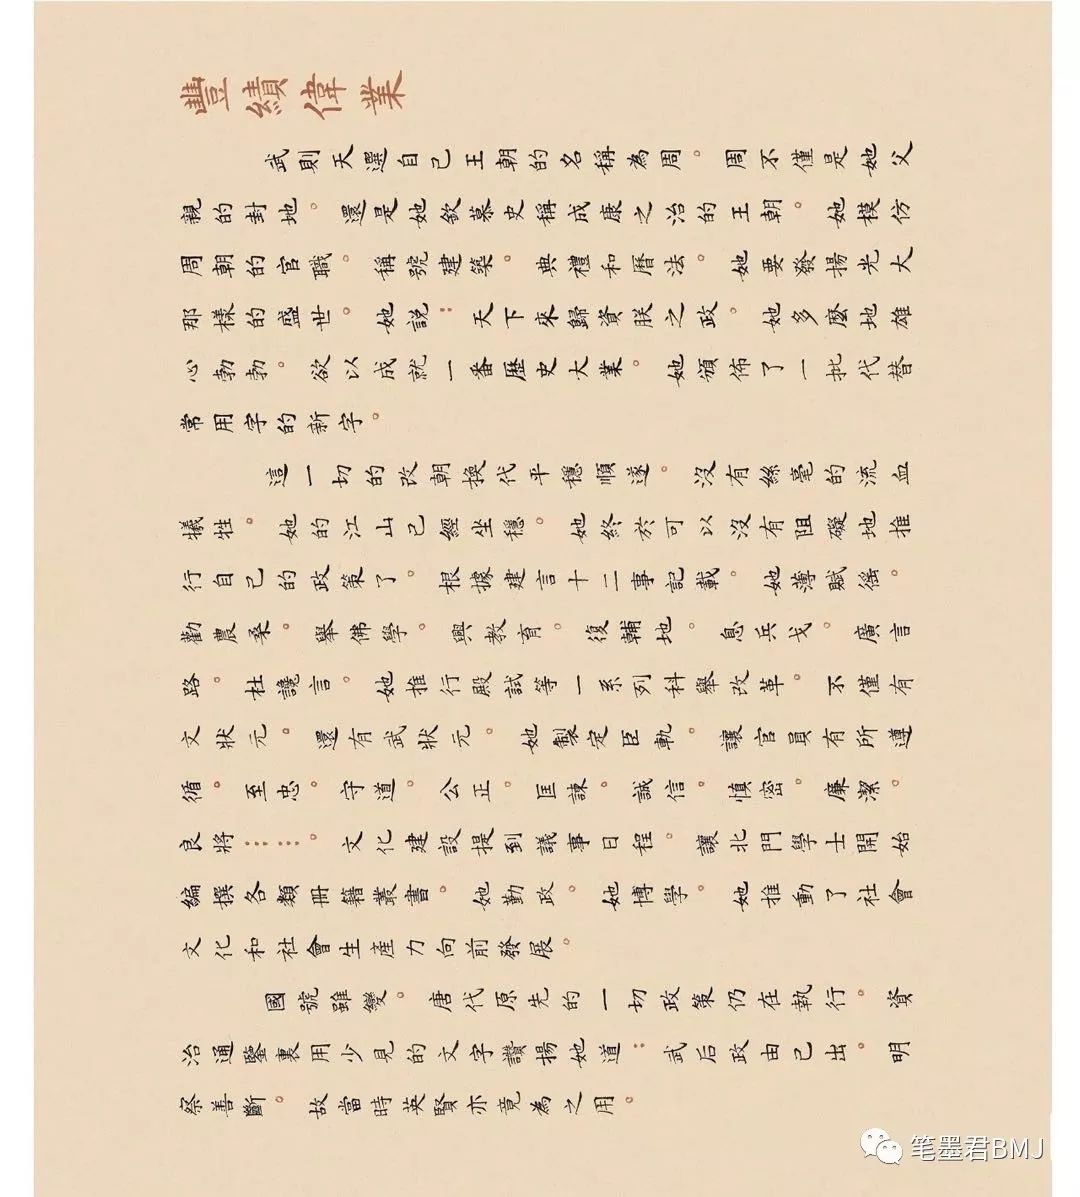 豐績偉業
武則天選自己王朝的名稱為周。周不僅是她父
親的封地。還是她欽慕史稱成康之治的王朝。她模仿
周朝的官職。稱號建築。典禮和曆法。她要發揚光大
那樣的盛世。她説：天下來歸資朕之政。她多麼地雄
心勃勃。欲以成就一番歷史大業。她頒佈了一批代替
常用字的新字。
這一切的改朝換代平穩順遂。沒有絲毫的流血
犧牲。她的江山已經坐穩。她終於可以沒有阻礙地推
行自己的政策了。根據建言十二事記載。她薄賦徭。
勸農桑。舉佛學。興教育。復輔地。息兵戈。廣言
路。杜讒言。她推行殿試等一系列科舉改革。不僅有
文狀元。還有武狀元。她製定臣軌。讓官員有所遵
循。至忠。守道。公正。匡諫。誠信。慎密。廉潔。
良將……。文化建設提到議事日程。讓北門學士開始
編撰各類冊籍叢書。她勤政。她博學。她推動了社會
文化和社會生產力向前發展。
國號雖變。唐代原先的一切政策仍在執行。資
治通鑒裏用少見的文字讚揚她道：武后政由己出。明
察善斷。故當時英賢亦竟為之用。
笔墨君BMJ